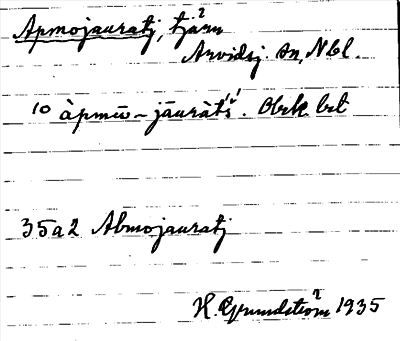 Apmojauratj, tjärn
Arvidsj. sn, Nbl.
10 àpmω̄ - jāuràt́ś. Obrk. brt
35a2 Abmojauratj
H. Grundström 1935